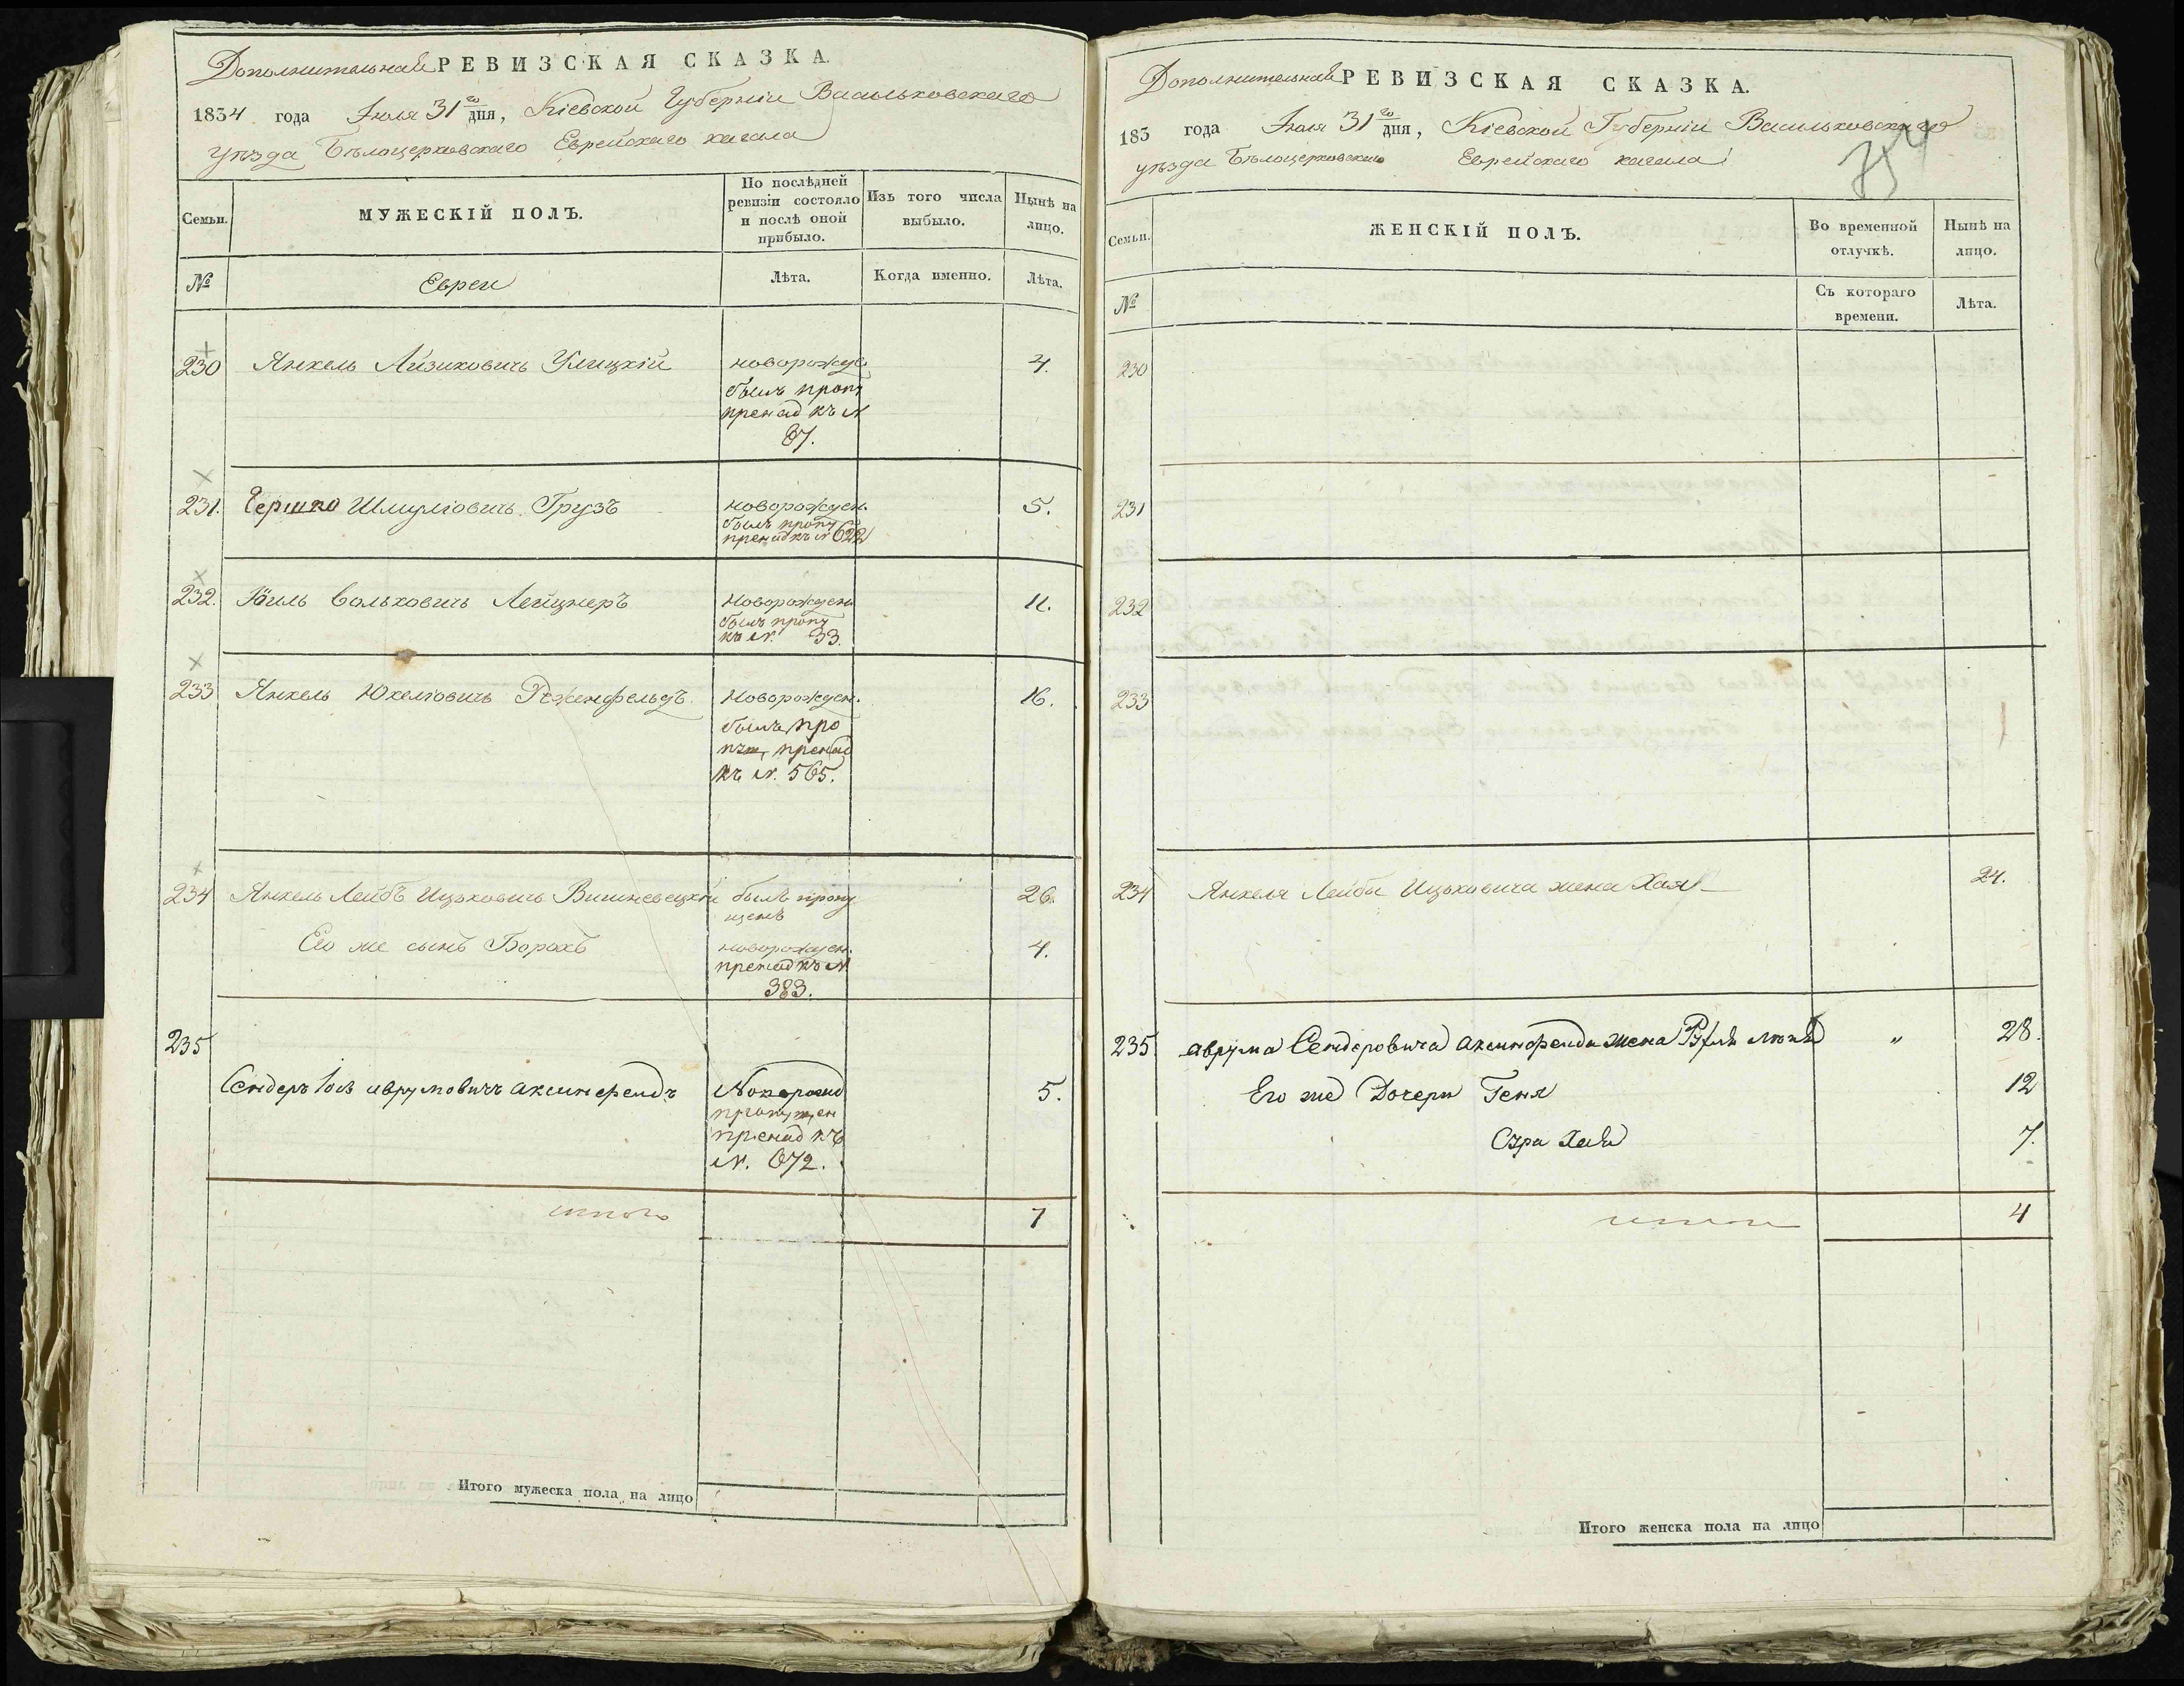 Дополнительная РЕВИЗСКАЯ СКАЗКА.
1834 года Іюля 31го дня, Кіевской Губерніи Васильковскаго
уѣзда Бѣлоцерковскаго Еврейскаго кагала
Семьи.
МУЖЕСКІЙ ПОЛЪ.
По послѣдней
ревизіи состояло
и послѣ оной
прибыло.
Изъ того числа
выбыло.
Нынѣ на
лицо.
№
Евреи
Лѣта.
Когда именно.
Лѣта.
230 Янкель Айзиковичь Улицкій новорожде 4.
былъ пропу
пренад къ N
87.
231. Гершко Шмулiовичь Грузъ новорожден. 5.
былъ пропу
пренад къ N 622
232. Іоиль Вольковичь Лейцнеръ новорожден 11.
былъ пропу
къ N. 33.
233 Янкель Юкелiовичь Розенфельдъ Новорожден. 16.
былъ про
пренад
къ N. 565.
234 Янкель Лейбъ Ицьковичь Вишневецкій былъ пропу 26.
щенъ
Его же сынъ Борохъ новорожден. 4.
пренад къ N
383.
235
Сендеръ Іось аврумовичъ аксинфендъ 5.
пропущен
пренад къ
N. 672.
итого 7
Итого мужеска пола на лицо
Дополнительная РЕВИЗСКАЯ СКАЗКА.
183 года Іюля 31го дня, Кіевской Губерніи Васильковскаго
уѣзда Бѣлоцерковскаго Еврейскаго кагала
Семьи.
ЖЕНСКІЙ ПОЛЪ.
Во временной
отлучкѣ.
Нынѣ на
лицо.
№
Съ котораго
времени.
Лѣта.
230
231
232
233
234 Янкеля Лейбы Ицьковича жена Хая 24.
235 аврума Сендеровича аксинфенда жена " 28.
Его же Дочери Геня 12
Сура Хая 7.
итого 4
Итого женска пола на лицо